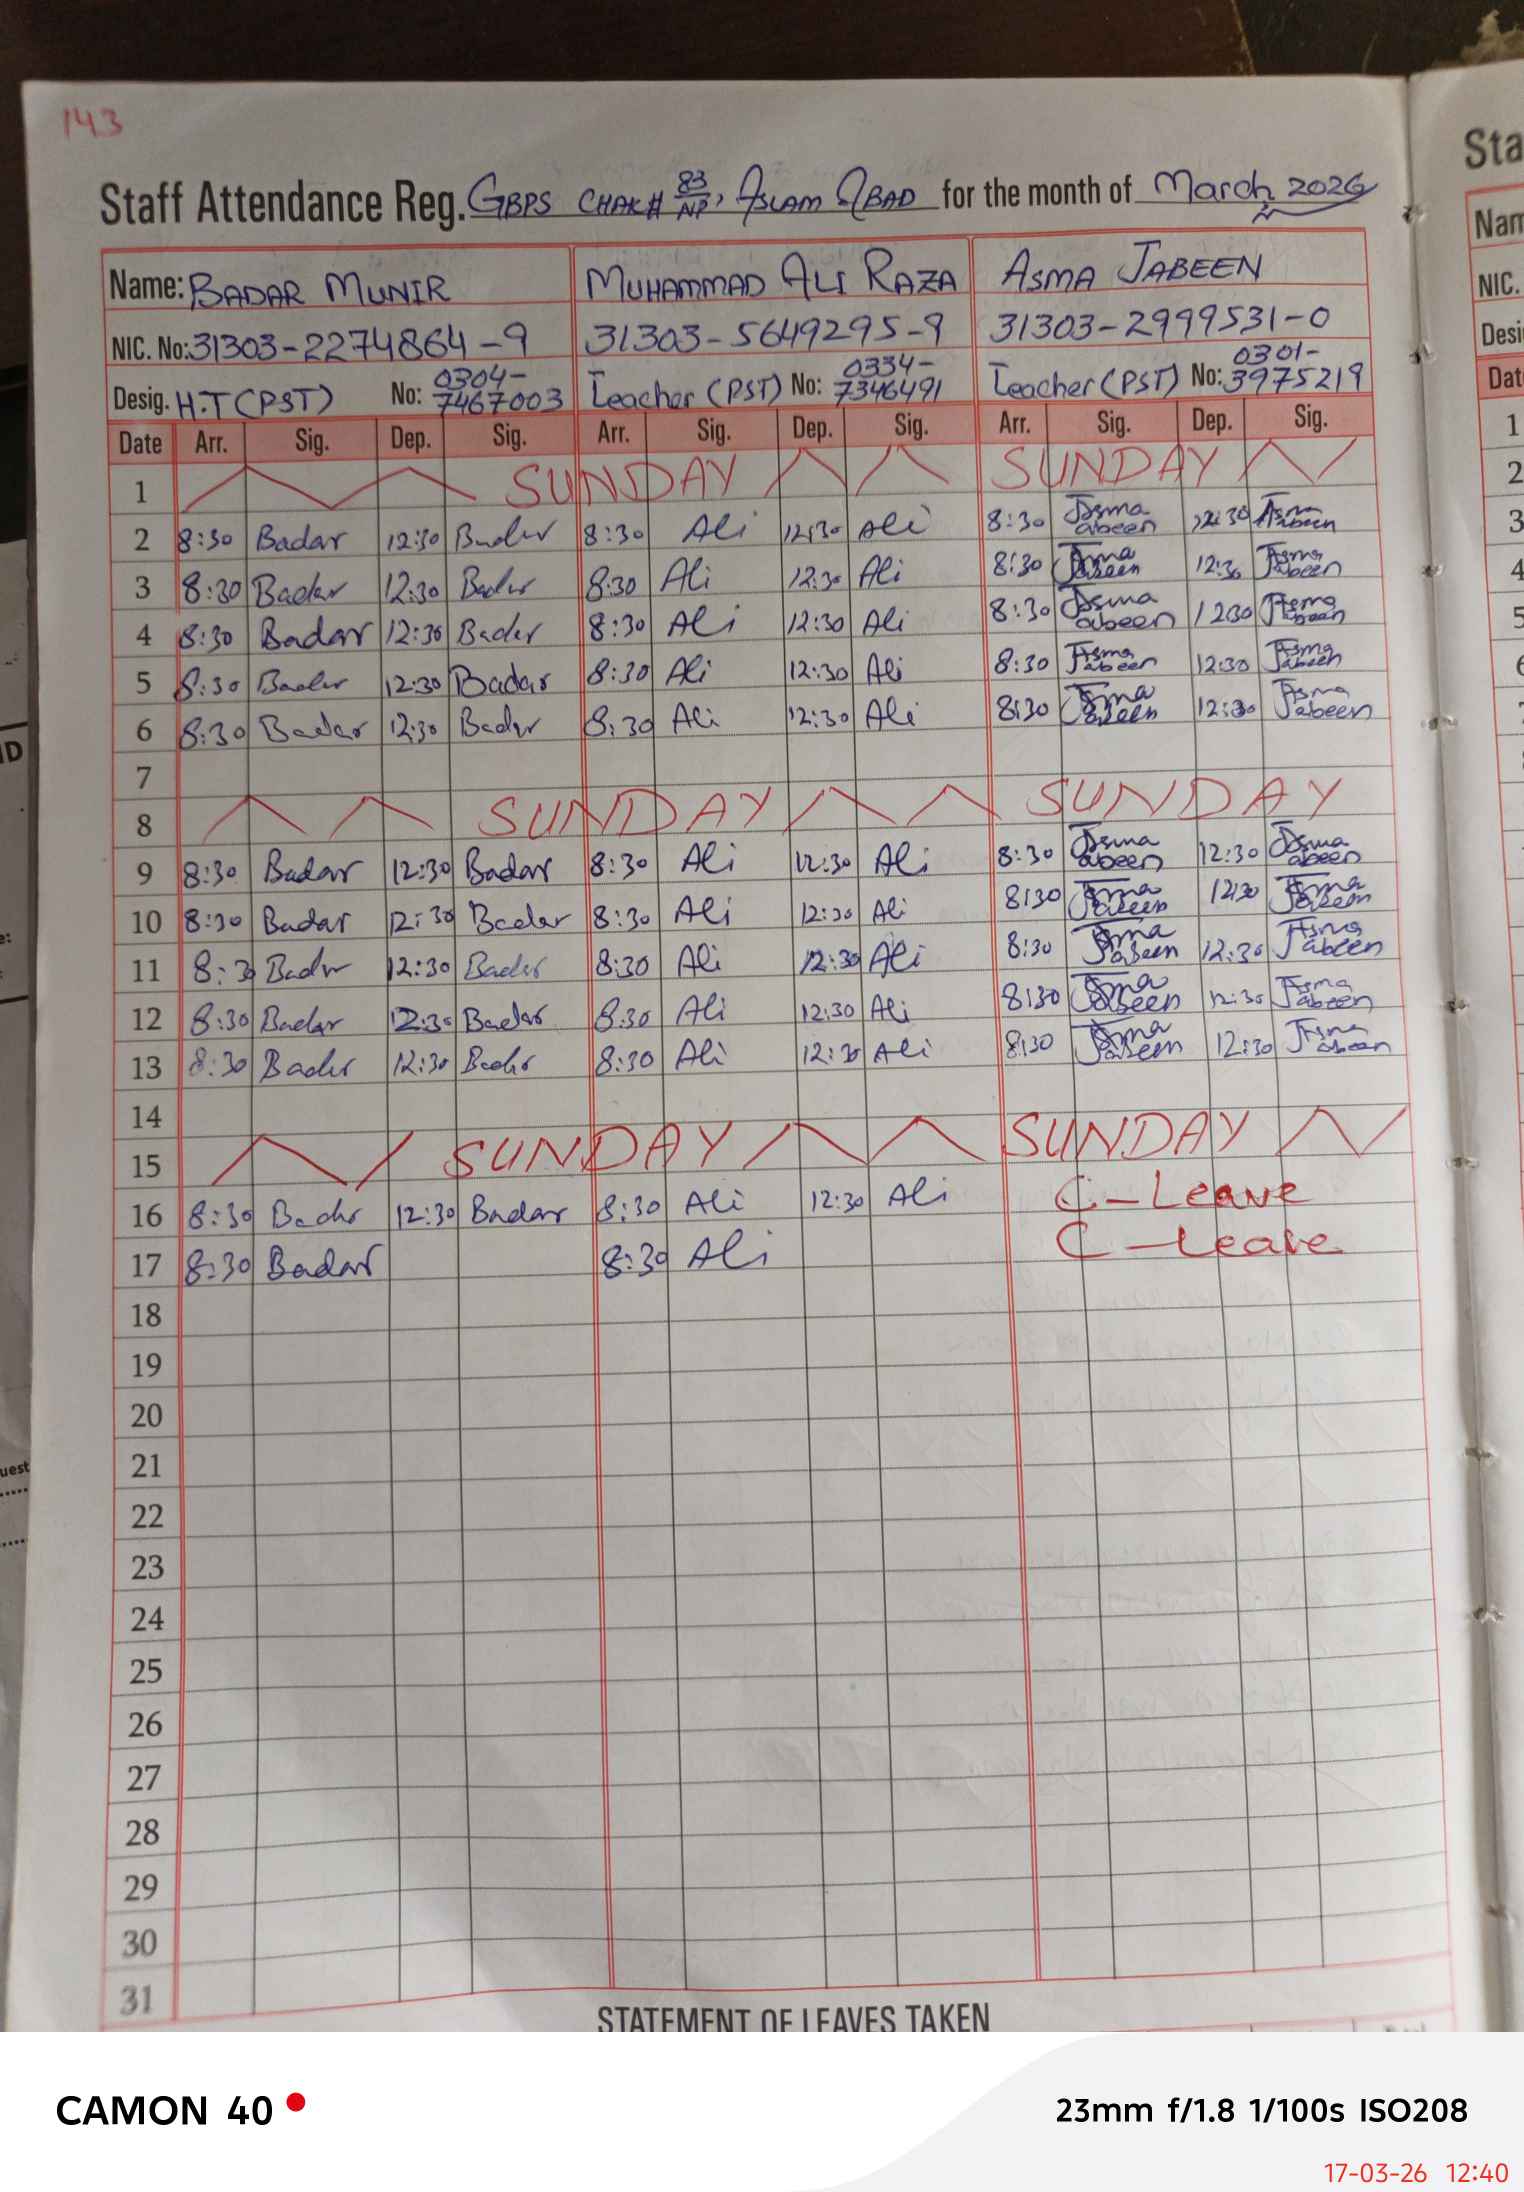 143
Staff Attendance Reg. GBPS CHAK# 83/NP, ISLAM ABAD for the month of March, 2026
Name: BADAR MUNIR MUHAMMAD ALI RAZA ASMA JABEEN
NIC. No: 31303-2274864-9 31303-5649295-9 31303-2999531-0
Desig. H.T (PST) No: 0304-7467003 Teacher (PST) No: 0334-7346491 Teacher (PST) No: 0301-3975219
Date Arr. Sig. Dep. Sig. Arr. Sig. Dep. Sig. Arr. Sig. Dep. Sig.
1 SUNDAY SUNDAY
2 8:30 Badar 12:30 Badar 8:30 Ali 12:30 Ali 8:30 Asma Jabeen 12:30 Asma Jabeen
3 8:30 Badar 12:30 Badar 8:30 Ali 12:30 Ali 8:30 Asma Jabeen 12:30 Asma Jabeen
4 8:30 Badar 12:30 Badar 8:30 Ali 12:30 Ali 8:30 Asma Jabeen 12:30 Asma Jabeen
5 8:30 Badar 12:30 Badar 8:30 Ali 12:30 Ali 8:30 Asma Jabeen 12:30 Asma Jabeen
6 8:30 Badar 12:30 Badar 8:30 Ali 12:30 Ali 8:30 Asma Jabeen 12:30 Asma Jabeen
7
8 SUNDAY SUNDAY
9 8:30 Badar 12:30 Badar 8:30 Ali 12:30 Ali 8:30 Asma Jabeen 12:30 Asma Jabeen
10 8:30 Badar 12:30 Badar 8:30 Ali 12:30 Ali 8:30 Asma Jabeen 12:30 Asma Jabeen
11 8:30 Badar 12:30 Badar 8:30 Ali 12:30 Ali 8:30 Asma Jabeen 12:30 Asma Jabeen
12 8:30 Badar 12:30 Badar 8:30 Ali 12:30 Ali 8:30 Asma Jabeen 12:30 Asma Jabeen
13 8:30 Badar 12:30 Badar 8:30 Ali 12:30 Ali 8:30 Asma Jabeen 12:30 Asma Jabeen
14
15 SUNDAY SUNDAY
16 8:30 Badar 12:30 Badar 8:30 Ali 12:30 Ali C-Leave
17 8:30 Badar 8:30 Ali C-Leave
18
19
20
21
22
23
24
25
26
27
28
29
30
31
STATEMENT OF LEAVES TAKEN
CAMON 40
23mm f/1.8 1/100s ISO208
17-03-26 12:40